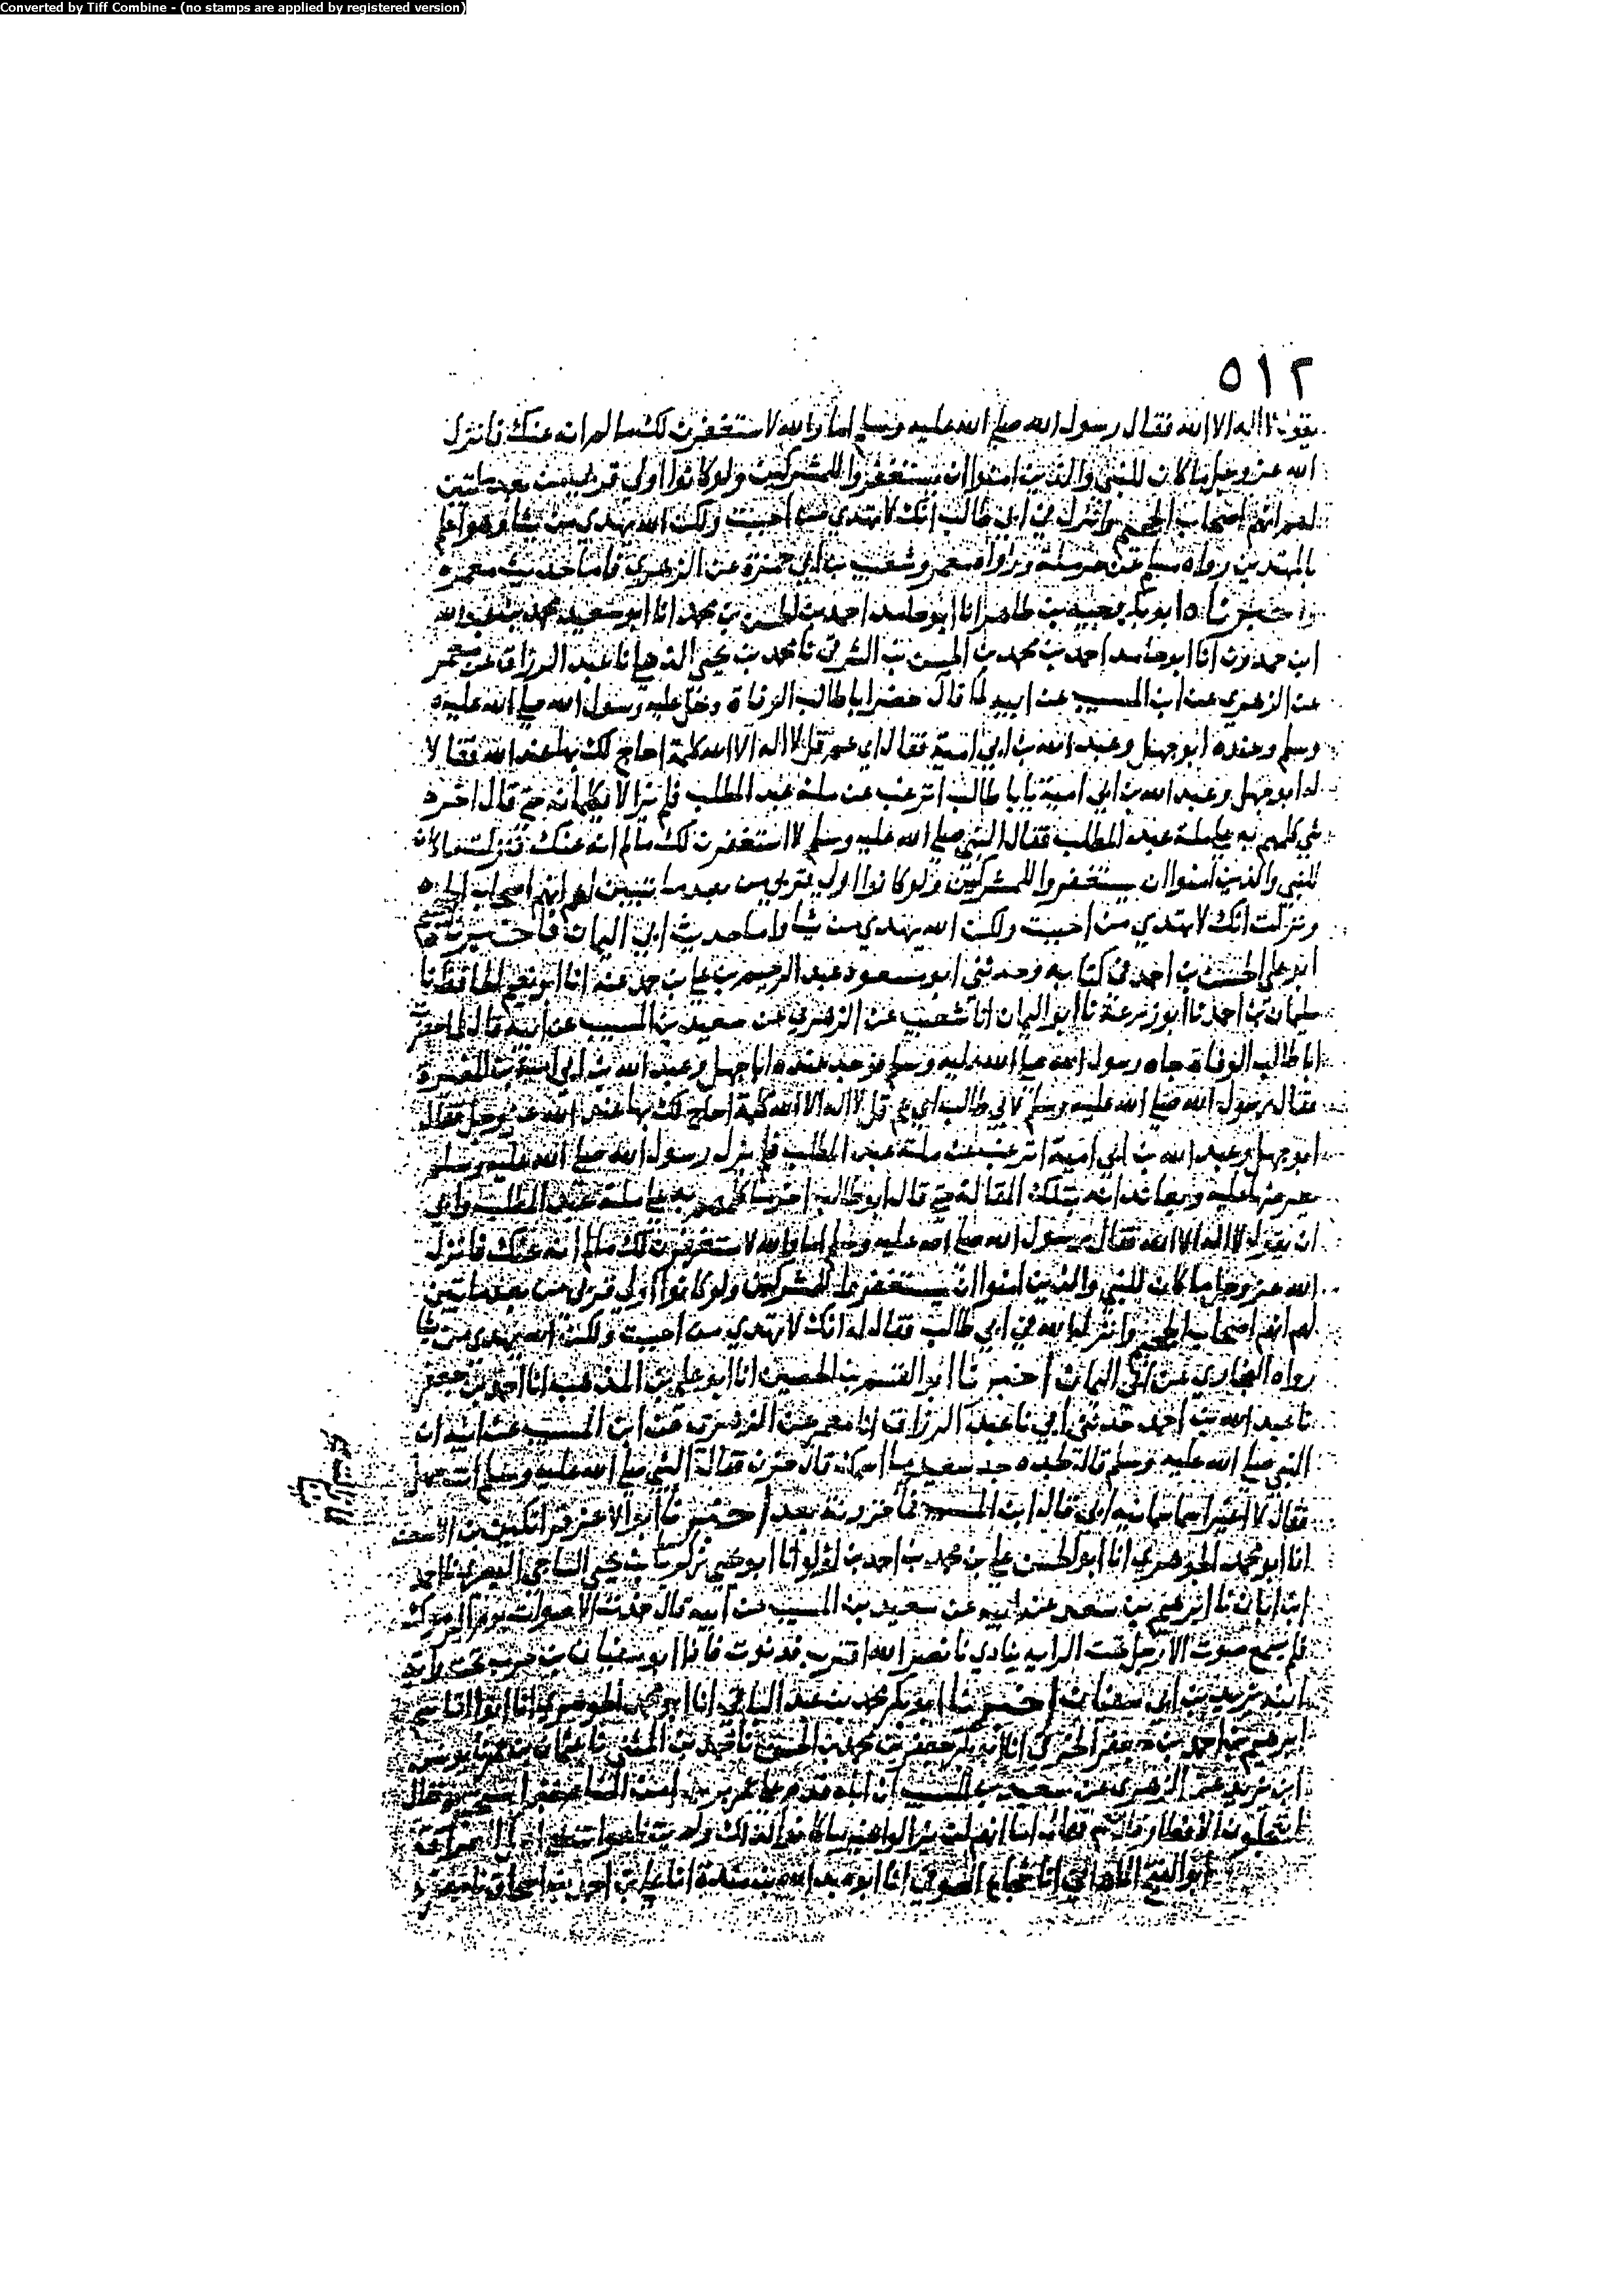 Converted by Tiff Combine - (no stamps are applied by registered version)
٥١٢
يقول لا اله الا الله فقال رسول الله صلى الله عليه وسلم اما والله لاستغفرن لك ما لم انه عنك فانزل
الله عز وجل ما كان للنبي والذين امنوا ان يستغفروا للمشركين ولو كانوا اولي قربى من بعد ما تبين
لهم انهم اصحاب الجحيم وانزل في ابي طالب انك لا تهدي من احببت ولكن الله يهدي من يشا وهو اعلم
بالمهتدين رواه مسلم عن حرملة ورواه معمر وشعيب بن ابي حمزة عن الزهري فاما حديث معمر
فاخبرناه ابو بكر وجيه بن طاهر انا ابو حامد احمد بن الحسن بن محمد انا ابو سعيد محمد بن عبد الله
ابن حمدون انا ابو حامد احمد بن محمد بن الحسن بن الشرقي نا محمد بن يحيى الذهلي نا عبد الرزاق عن معمر
عن الزهري عن ابن المسيب عن ابيه لما قال حضر ابا طالب الوفاة دخل عليه رسول الله صلى الله عليه
وسلم وعنده ابو جهل وعبد الله بن ابي امية فقال اي عم قل لا اله الا الله كلمة احاج لك بها عند الله فقالا
له ابو جهل وعبد الله بن ابي امية يابا طالب اترغب عن ملة عبد المطلب فلم يزالا يكلمانه حتى قال اخر
شي كلمهم به على ملة عبد المطلب فقال النبي صلى الله عليه وسلم لا استغفرن لك ما لم انه عنك فنزلت ما كان
للنبي والذين امنوا ان يستغفروا للمشركين ولو كانوا اولي قربى من بعد ما تبين لهم انهم اصحاب الجحيم
ونزلت انك لا تهدي من احببت ولكن الله يهدي من يشا واما حديث ابي اليمان فاخبرناه
ابو علي الحسن بن احمد في كتابه وحدثني ابو مسعود عبد الرحيم بن علي بن حمد عنه انا ابو نعيم الحافظ نا
سليمان بن احمد نا ابو زرعة نا ابو اليمان انا شعيب عن الزهري عن سعيد بن المسيب عن ابيه قال لما حضرت
ابا طالب الوفاة جاه رسول الله صلى الله عليه وسلم فوجد عنده ابا جهل وعبد الله بن ابي امية بن المغيرة
فقال رسول الله صلى الله عليه وسلم لابي طالب اي عم قل لا اله الا الله كلمة احاج لك بها عند الله عز وجل فقال
ابو جهل وعبد الله بن ابي امية اترغب عن ملة عبد المطلب فلم يزل رسول الله صلى الله عليه وسلم
يعرضها عليه ويعاندانه بتلك المقالة حتى قال ابو طالب اخر ما كلمهم به على ملة عبد المطلب وابى
ان يقول لا اله الا الله فقال رسول الله صلى الله عليه وسلم اما والله لاستغفرن لك ما لم انه عنك فانزل
الله عز وجل ما كان للنبي والذين امنوا ان يستغفروا للمشركين ولو كانوا اولي قربى من بعد ما تبين
لهم انهم اصحاب الجحيم وانزل الله في ابي طالب فقال له انك لا تهدي من احببت ولكن الله يهدي من يشا
رواه البخاري عن ابي اليمان اخبرنا ابو القسم بن الحصين انا ابو علي بن المذهب انا احمد بن جعفر
نا عبد الله بن احمد حدثني ابي نا عبد الرزاق انا معمر عن الزهري عن ابن المسيب عن ابيه ان
النبي صلى الله عليه وسلم قال لجده جد سعيد ما اسمك قال حزن فقال النبي صلى الله عليه وسلم انت سهل
فقال لا اغير اسما سمانيه ابي قال ابن المسيب فما حزونة بعد اخبرنا ابو الاعز قراتكين بن الاسعد
انا ابو محمد الجوهري انا ابو الحسن علي بن محمد بن احمد بن لؤلو انا ابو يحيى زكريا بن يحيى الساجي البصري نا احمد
ابن ابان نا ابرهيم بن سعد عن ابيه عن سعيد بن المسيب عن ابيه قال خمدت الاصوات يوم اليرموك
فلم يسمع صوت الا رجل تحت الراية ينادي يا نصر الله اقترب فدنوت فاذا ابو سفيان بن حرب تحت راية
ابنه يزيد بن ابي سفيان اخبرنا ابو بكر محمد بن عبد الباقي انا ابو محمد الجوهري انا ابو القاسم
ابرهيم بن احمد بن جعفر الخرقي انا ابو بكر جعفر بن محمد بن الحسن نا محمد بن المثنى نا عثمان بن عمر نا يونس
ابن يزيد عن الزهري عن سعيد بن المسيب ان اباه قدم على عمر
ابو الفتح الماهاني انا شجاع الصوفي انا ابو عبد الله بن مندة انا علي بن احمد بن اسحاق نا